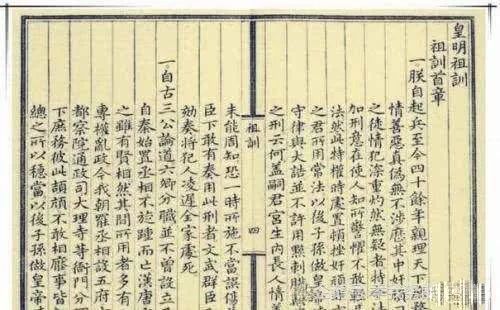 皇明祖訓
祖訓首章
一朕自起兵至今四十餘年親理天下
情善惡真偽無不涉歷其中奸頑
之徒情犯深重灼然無疑者特
加刑意在使人知所警懼不敢
法然此特權時處置頓挫奸頑
之君所用常法以後子孫做皇
守律與大誥並不許用黥刺
之刑云何蓋嗣君宮生內長人情
祖訓 四
未能周知恐一時所施不當誤傷
臣下敢有奏用此刑者文武群臣
劾奏將犯人凌遲全家處死
一自古三公論道六卿分職並不曾設立
自秦始置丞相不旋踵而亡漢唐
之雖有賢相然其間所用者多有
專權亂政今我朝罷丞相設五府
都察院通政司大理寺等衙門分
下庶務彼此頡頏不敢相壓事皆
總之所以穩當以後子孫做皇帝